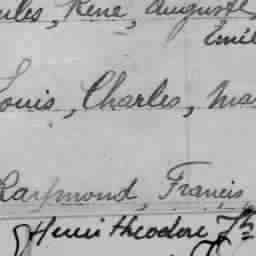 René, Auguste
Louis, Charles,
Raymond, Francis
Henri theodore